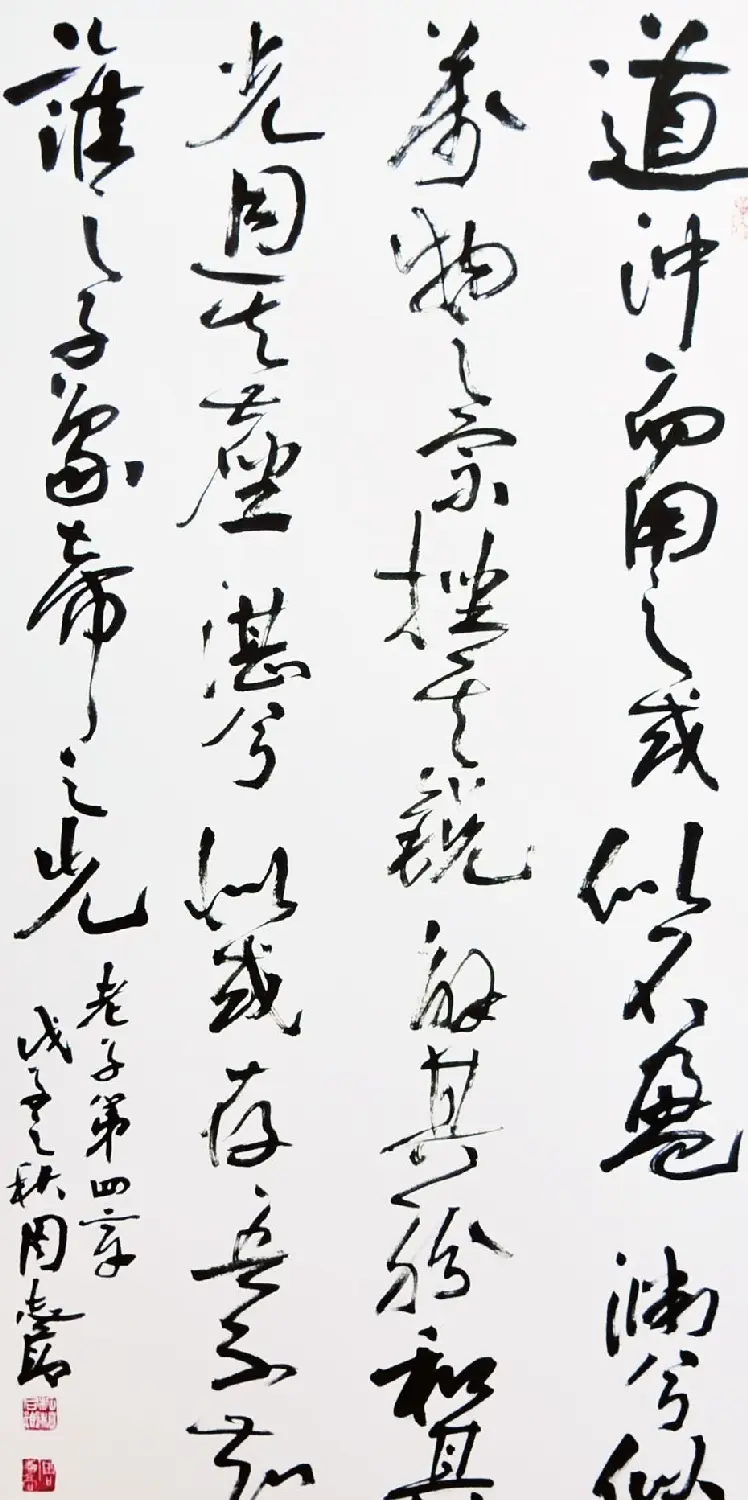 道沖而用之或似不盈渊兮似
萬物之宗挫其銳解其紛和其
光同其塵湛兮似或存吾不知
誰之子象帝之先
老子第四章
戊子之秋周